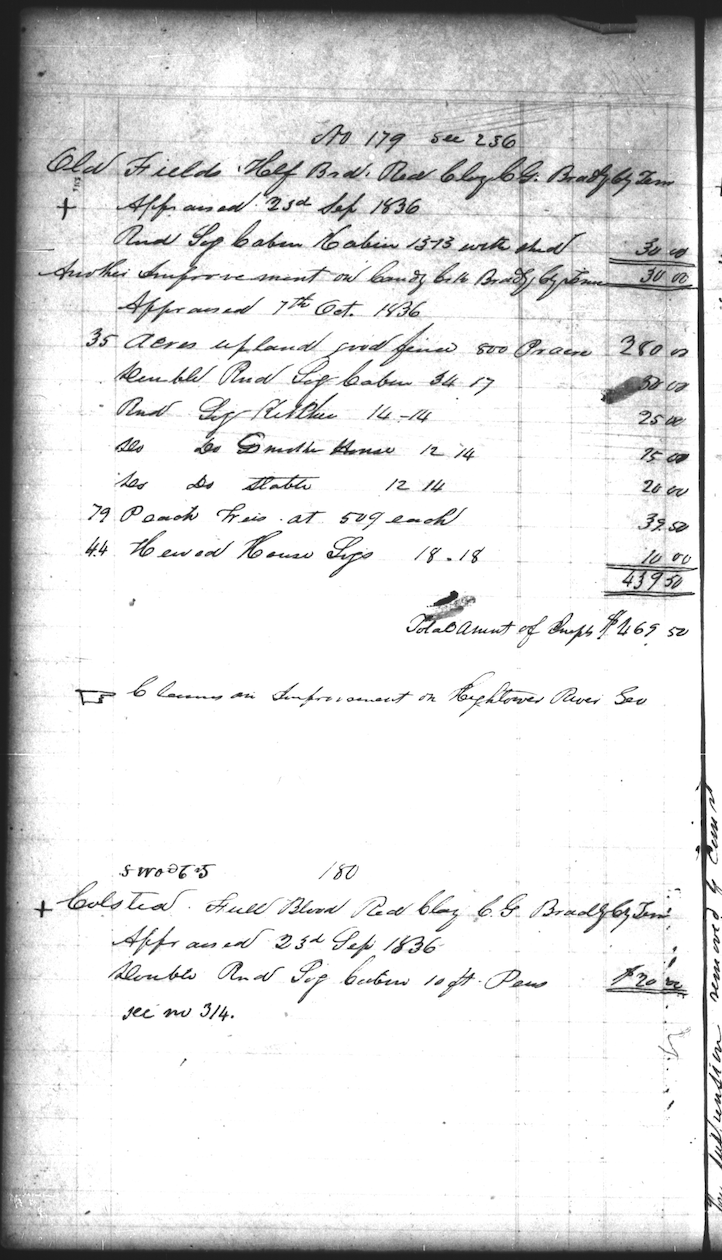 No 179 see 256
Old Fields Half Brd. Red Clay C.G. Bradly Cy Tenn
Appraised 23d Sep 1836
Rnd Log Cabin Kabin 13-13 with shed 30 00
Another Improvement on Candy Crk Bradly Cy Tenn 30 00
Appraised 7th Oct. 1836
35 Acres upland good fence 800 Pr acre 280 00
Double Rnd Log Cabin 34 17 50 00
Rnd Log Kitchen 14-14 25 00
Do Do Smoke House 12 14 15 00
Do Do Stable 12 14 20 00
79 Peach Trees at 50¢ each 39 50
44 Hewed House Logs 18-18 10 00
439 50
Total Amnt of Impts $469 50
Claims an Improvement on Hightower River Geo
180
+ Colsted. Full Blood Red Clay C.G. Bradly Cy Tenn
Appraised 23d Sep 1836
Double Rnd Log Cabin 10 ft. Pens $20 00
see no 314.